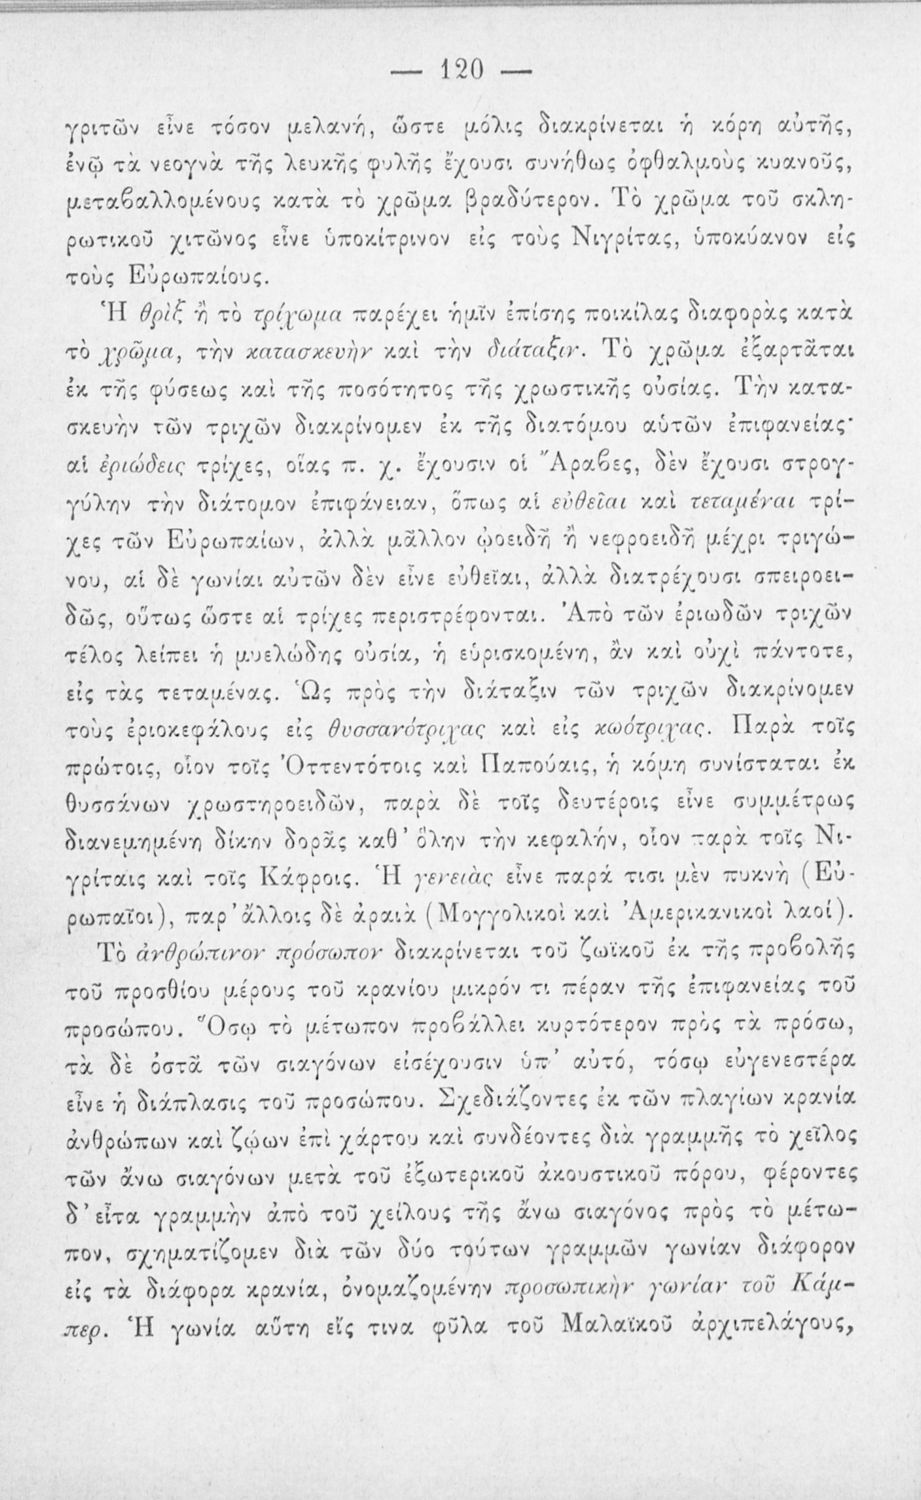 — 120 —
γριτῶν εἶνε τόσον μελανή, ὥστε μόλις διακρίνεται ἡ κόρη αὐτῆς,
ἐνῷ τὰ νεογνὰ τῆς λευκῆς φυλῆς ἔχουσι συνήθως ὀφθαλμοὺς κυανοῦς,
μεταβαλλομένους κατὰ τὸ χρῶμα βραδύτερον. Τὸ χρῶμα τοῦ σκλη-
ρωτικοῦ χιτῶνος εἶνε ὑποκίτρινον εἰς τοὺς Νιγρίτας, ὑποκύανον εἰς
τοὺς Εὐρωπαίους.
Ἡ θρὶξ ἢ τὸ τρίχωμα παρέχει ἡμῖν ἐπίσης ποικίλας διαφορὰς κατὰ
τὸ χρῶμα, τὴν κατασκευὴν καὶ τὴν διάταξιν. Τὸ χρῶμα ἐξαρτᾶται
ἐκ τῆς φύσεως καὶ τῆς ποσότητος τῆς χρωστικῆς οὐσίας. Τὴν κατα-
σκευὴν τῶν τριχῶν διακρίνομεν ἐκ τῆς διατόμου αὑτῶν ἐπιφανείας·
αἱ ἐριώδεις τρίχες, οἵας π. χ. ἔχουσιν οἱ Ἄραβες, δὲν ἔχουσι στρογ-
γύλην τὴν διάτομον ἐπιφάνειαν, ὅπως αἱ εὐθεῖαι καὶ τεταμέναι τρί-
χες τῶν Εὐρωπαίων, ἀλλὰ μᾶλλον ᾠοειδῆ ἢ νεφροειδῆ μέχρι τριγώ-
νου, αἱ δὲ γωνίαι αὐτῶν δὲν εἶνε εὐθεῖαι, ἀλλὰ διατρέχουσι σπειροει-
δῶς, οὕτως ὥστε αἱ τρίχες περιστρέφονται. Ἀπὸ τῶν ἐριωδῶν τριχῶν
τέλος λείπει ἡ μυελώδης οὐσία, ἡ εὑρισκομένη, ἂν καὶ οὐχὶ πάντοτε,
εἰς τὰς τεταμένας. Ὡς πρὸς τὴν διάταξιν τῶν τριχῶν διακρίνομεν
τοὺς ἐριοκεφάλους εἰς θυσσανότριχας καὶ εἰς κωότριχας. Παρὰ τοῖς
πρώτοις, οἷον τοῖς Ὀττεντότοις καὶ Παπούαις, ἡ κόμη συνίσταται ἐκ
θυσσάνων χρωστηροειδῶν, παρὰ δὲ τοῖς δευτέροις εἶνε συμμέτρως
διανεμημένη δίκην δορᾶς καθ' ὅλην τὴν κεφαλήν, οἷον παρὰ τοῖς Νι-
γρίταις καὶ τοῖς Κάφροις. Ἡ γενειὰς εἶνε παρά τισι μὲν πυκνὴ (Εὐ-
ρωπαῖοι), παρ' ἄλλοις δὲ ἀραιὰ (Μογγολικοὶ καὶ Ἀμερικανικοὶ λαοί).
Τὸ ἀνθρώπινον πρόσωπον διακρίνεται τοῦ ζωϊκοῦ ἐκ τῆς προβολῆς
τοῦ προσθίου μέρους τοῦ κρανίου μικρόν τι πέραν τῆς ἐπιφανείας τοῦ
προσώπου. Ὅσῳ τὸ μέτωπον προβάλλει κυρτότερον πρὸς τὰ πρόσω,
τὰ δὲ ὀστᾶ τῶν σιαγόνων εἰσέχουσιν ὑπ' αὐτό, τόσῳ εὐγενεστέρα
εἶνε ἡ διάπλασις τοῦ προσώπου. Σχεδιάζοντες ἐκ τῶν πλαγίων κρανία
ἀνθρώπων καὶ ζῴων ἐπὶ χάρτου καὶ συνδέοντες διὰ γραμμῆς τὸ χεῖλος
τῶν ἄνω σιαγόνων μετὰ τοῦ ἐξωτερικοῦ ἀκουστικοῦ πόρου, φέροντες
δ' εἶτα γραμμὴν ἀπὸ τοῦ χείλους τῆς ἄνω σιαγόνος πρὸς τὸ μέτω-
πον, σχηματίζομεν διὰ τῶν δύο τούτων γραμμῶν γωνίαν διάφορον
εἰς τὰ διάφορα κρανία, ὀνομαζομένην προσωπικὴν γωνίαν τοῦ Κάμ-
περ. Ἡ γωνία αὕτη εἴς τινα φῦλα τοῦ Μαλαϊκοῦ ἀρχιπελάγους,